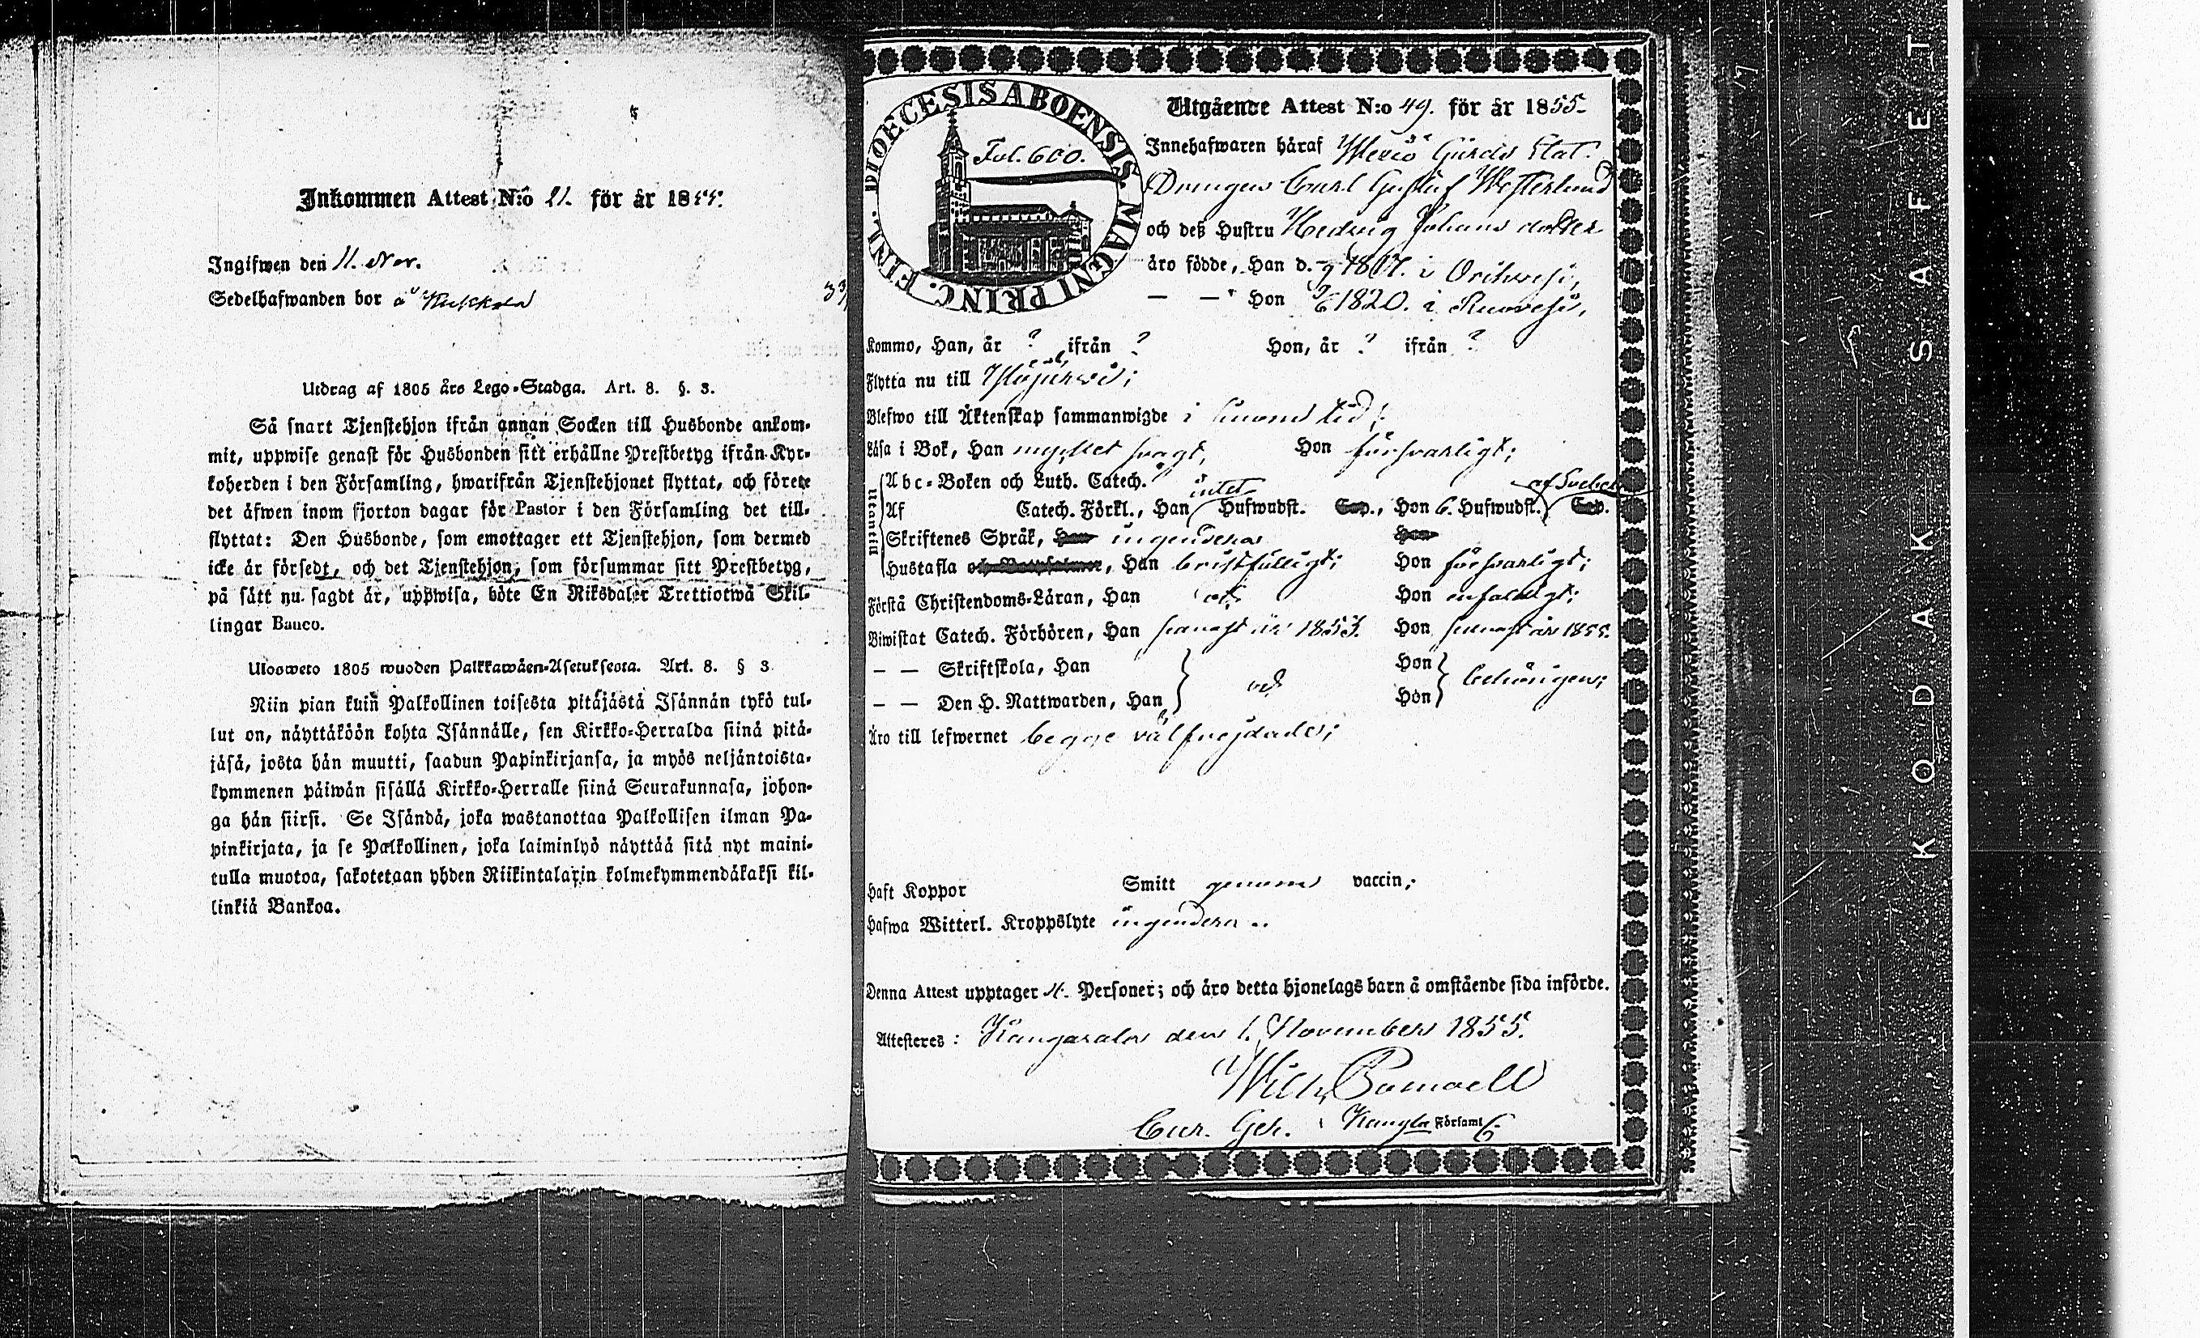 Inkommen Attest N:o 21. för år 1855.
Ingifwen den 11. Nov.
Sedelhafwanden bor å Kukkola
Utdrag af 1805 års Lego-Stadga. Art. 8. §. 3.
Så snart Tjenstehjon ifrån annan Socken till Husbonde ankom-
mit, uppwise genast för Husbonden sitt erhållne Prestbetyg ifrån Kyr-
koherden i den Församling, hwarifrån Tjenstehjonet flyttat, och förete
det äfwen inom fjorton dagar för Pastor i den Församling det till-
flyttat: Den Husbonde, som emottager ett Tjenstehjon, som dermed
icke är försedt, och det Tjenstehjon, som försummar sitt Prestbetyg,
på sätt nu sagdt är, uppwisa, böte En Riksdaler Trettiotwå Skil-
lingar Banco.
Ulosweto 1805 wuoden Palkkawäen-Asetuksesta. Art. 8. § 3
Niin pian kuin Palkollinen toisesta pitäjästä Isännän tykö tul-
lut on, näyttäköön kohta Isännälle, sen Kirkko-Herralda siinä pitä-
jäsä, josta hän muutti, saadun Papinkirjansa, ja myös neljäntoista-
kymmenen päiwän sisällä Kirkko-Herralle siinä Seurakunnasa, johon-
ga hän siirsi. Se Isändä, joka wastanottaa Palkollisen ilman Pa-
pinkirjata, ja se Palkollinen, joka laiminlyö näyttää sitä nyt maini-
tulla muotoa, sakotetaan yhden Riikintalarin kolmekymmendäkaksi kil-
linkiä Bankoa.
DIOECESIS ABOENSIS. MAGNI PRINC. FINL.
Fol. 600.
Utgående Attest N:o 49. för år 1855.
Innehafwaren häraf Gårds Stat
Drängen Carl Gustaf Westerlund
och deß Hustru Hedvig Johans dotter
äro födde, Han d. 1817. i Orihvesi,
— — Hon 1820. i Ruovesi,
Kommo, Han, år ? ifrån ? Hon, år ? ifrån ?
Flytta nu till Ylöjärvi;
Blefwo till Äktenskap sammanwigde i sinom tid;
Läsa i Bok, Han mycket svagt, Hon försvarligt;
Utantill
Abc-Boken och Luth. Catech.
Af Catech. Förkl., Han intet Hufwudst. Cap., Hon 6. Hufwudst. af Svebel. Cap.
Skriftenes Språk, Han ingendera Hon
Hustafla, Han bristfälligt; Hon försvarligt;
Förstå Christendoms-Läran, Han Hon enfaldigt;
Biwistat Catech. Förhören, Han senast år 1853. Hon senast år 1855.
— — Skriftskola, Han Hon
— — Den H. Nattwarden, Han Hon behörigen;
Äro till lefwernet begge välfrejdade;
Haft Koppor Smitt genom vaccin;
Hafwa Witterl. Kroppslyte ingendera
Denna Attest upptager 4. Personer; och äro detta hjonelags barn å omstående sida införde.
Attesteras: Kangasala den 1. November 1855.
Wilh. Pomoell
Cur. Ger. i Kangla Förfaml
KODAK SAFET